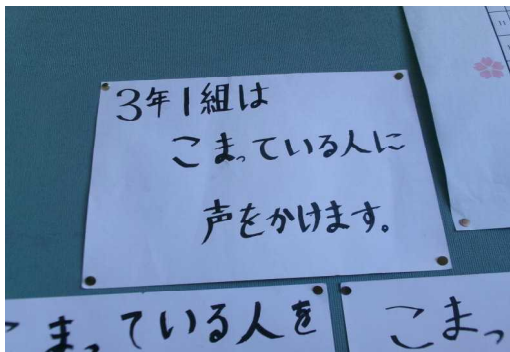 3年1組は
こまっている人に
声をかけます。
こまっている人を
こまっ